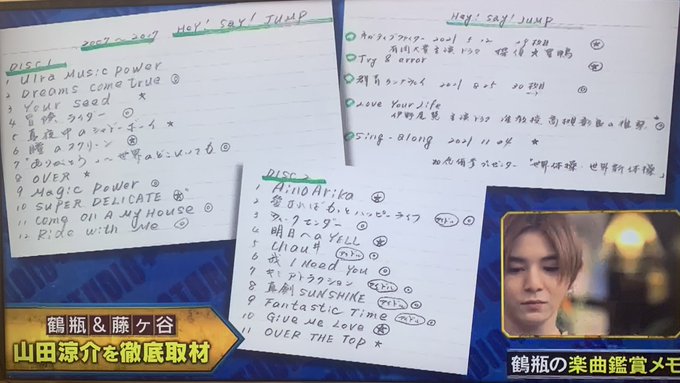 2007〜2017 Hey! Say! JUMP
DISC 1
1 Ulra Music Power
2 Dreams come true ◎
3 Your seed ★
4 冒険ライダー ◎
5 真夜中のシャドーボーイ ★
6 瞳のスクリーン ◎
7 "ありがとう"〜世界のどこにいても ◎
8 OVER ★
9 Magic Power ◎
10 SUPER DELICATE
11 Come On A My House ◎
12 Ride With Me ◎
Hey! Say! JUMP
ネガティブファイター 2021 5.12
有岡大貴主演ドラマ 探偵☆星鴨
Try & error
群青ランナウェイ 2021 8 25
Love Your Life
伊野尾慧 主演ドラマ 准教授・高槻彰良の推察
Sing-along 2021 11 24 ★
"世界体操・世界新体操"
DISC 2
1 Ainoarika
2 愛すればもっとハッピーライフ アイドル ◎
3 ウィークエンダー ◎
4 明日へのYELL
5 Chau# アイドル
6 我 I Need You ◎
7 キミアトラクション アイドル
8 真剣SUNSHINE アイドル
9 Fantastic Time アイドル ◎
10 Give Me Love
11 OVER THE TOP ★
鶴瓶&藤ヶ谷
山田涼介を徹底取材
鶴瓶の楽曲鑑賞メモ